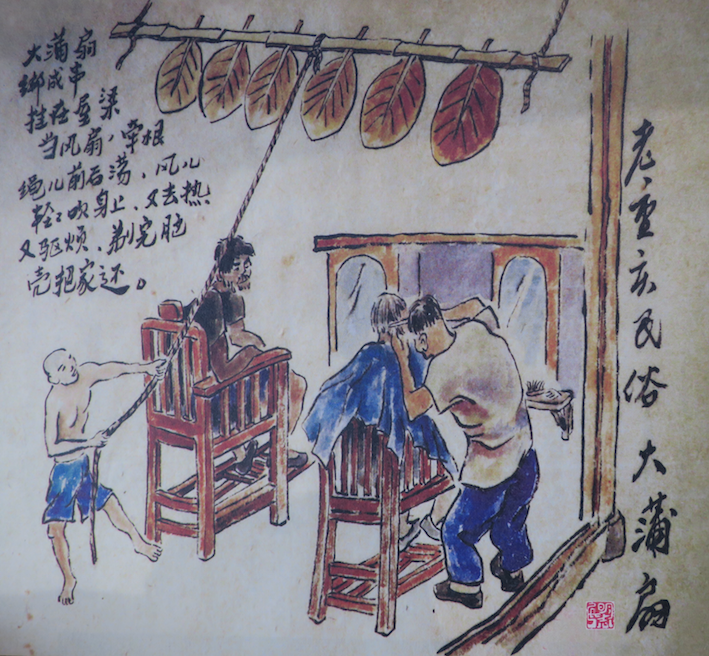 大蒲扇
绑成串
挂在屋梁
当风扇，牵根
绳儿前后荡，风儿
轻轻吹身上、又去热
又驱烦、剃完脑
壳把家还。
老重庆民俗 大蒲扇